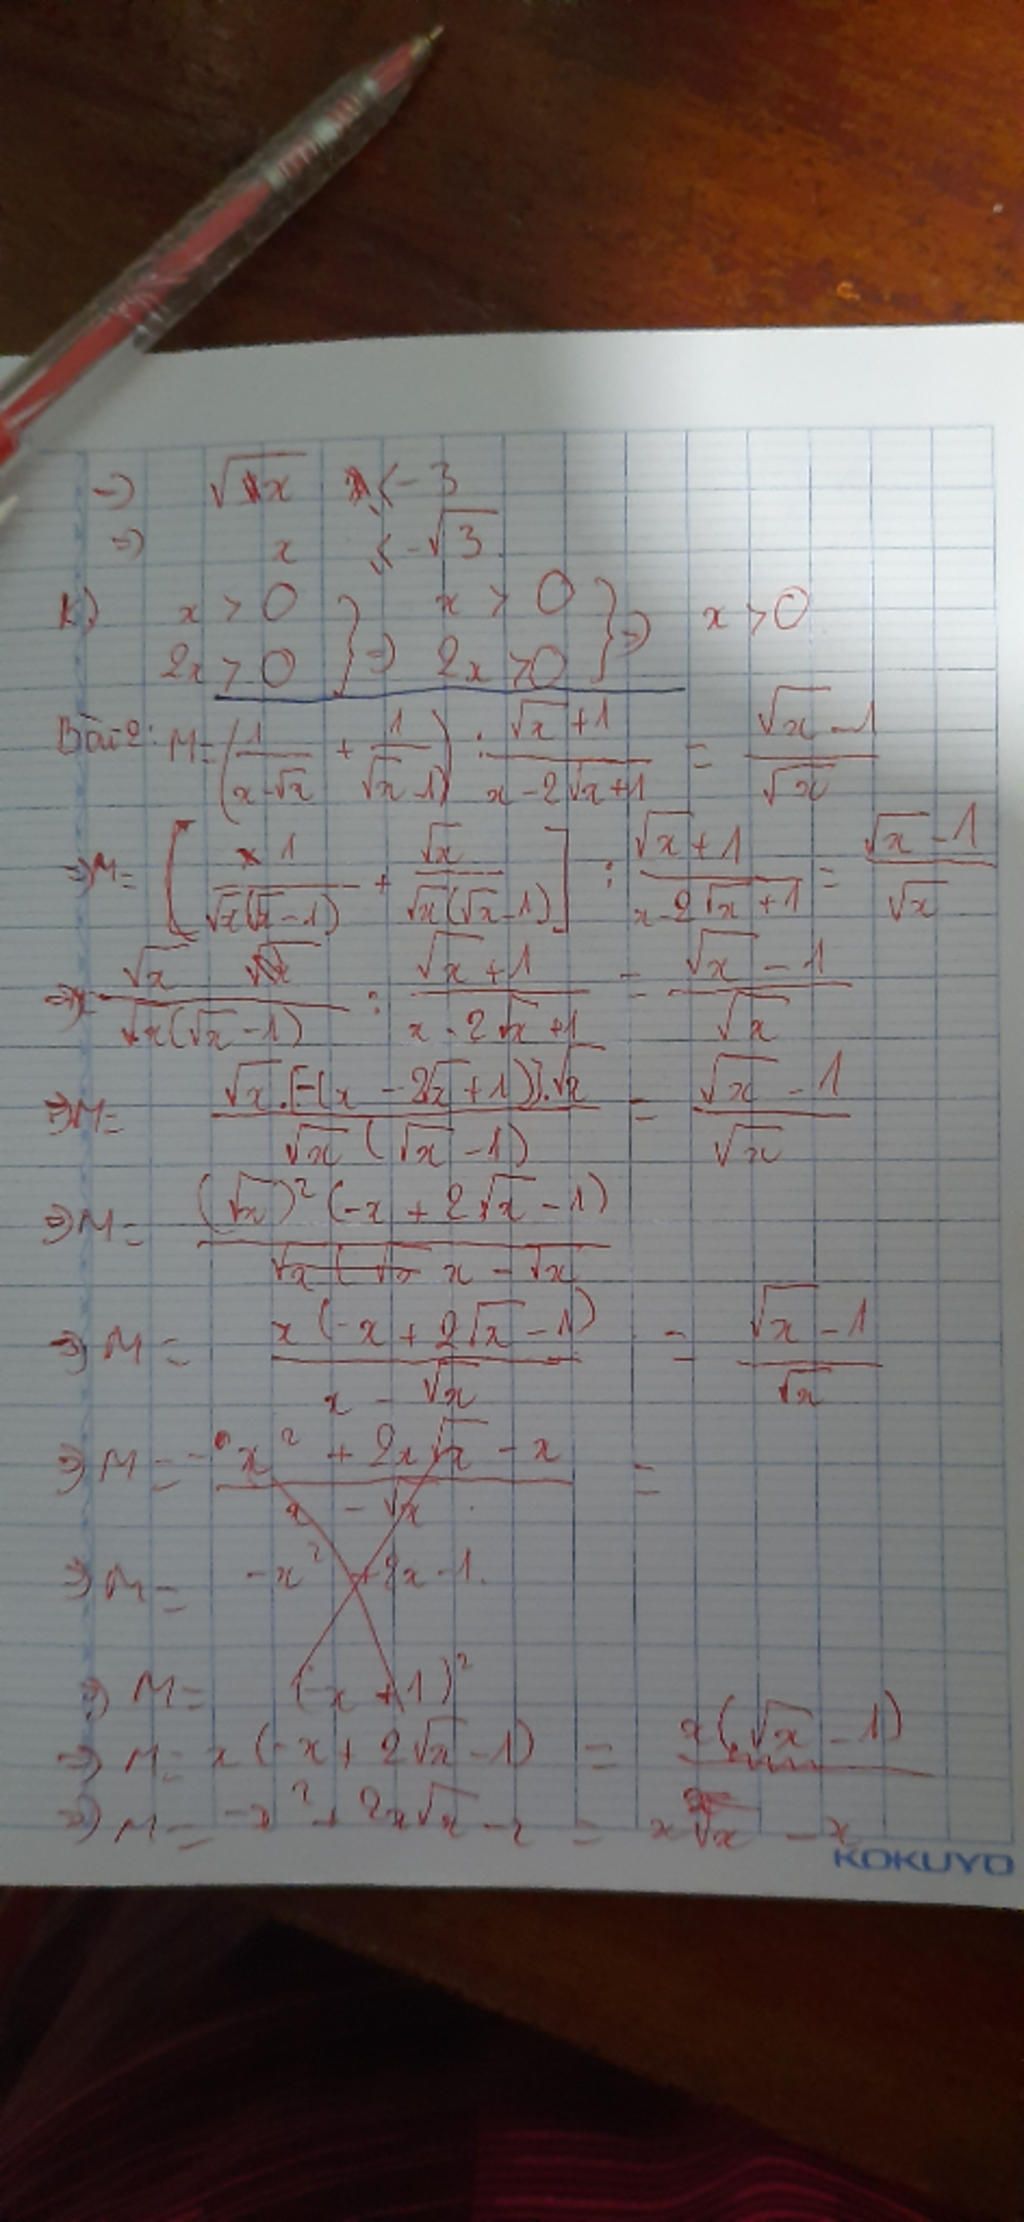 =) √x < -3
=) x < -√3
k) x > 0 } =) x > 0 } =) x > 0
2x > 0 } =) 2x > 0 }
Bài 2: M = (1/(x-√x) + 1/(√x-1)) : (√x+1)/(x-2√x+1) = (√x-1)/√x
=) M = [1/(√x(√x-1)) + √x/(√x(√x-1))] : (√x+1)/(x-2√x+1) = (√x-1)/√x
=) √x/(√x(√x-1)) : (√x+1)/(x-2√x+1) = (√x-1)/√x
=) M = (√x.[-(x-2√x+1)].√x)/(√x(√x-1)) = (√x-1)/√x
=) M = ((√x)²(-x+2√x-1))/(x-√x)
=) M = (x(-x+2√x-1))/(x-√x) = (√x-1)/√x
=) M = (-x²+2x√x-x)/(x-√x) =
=) M = -x²+2x-1.
=) M = (-x+1)²
=) M = x(-x+2√x-1) = x(√x-1)
=) M = -x²+2x√x-x = x√x-x
KOKUYO